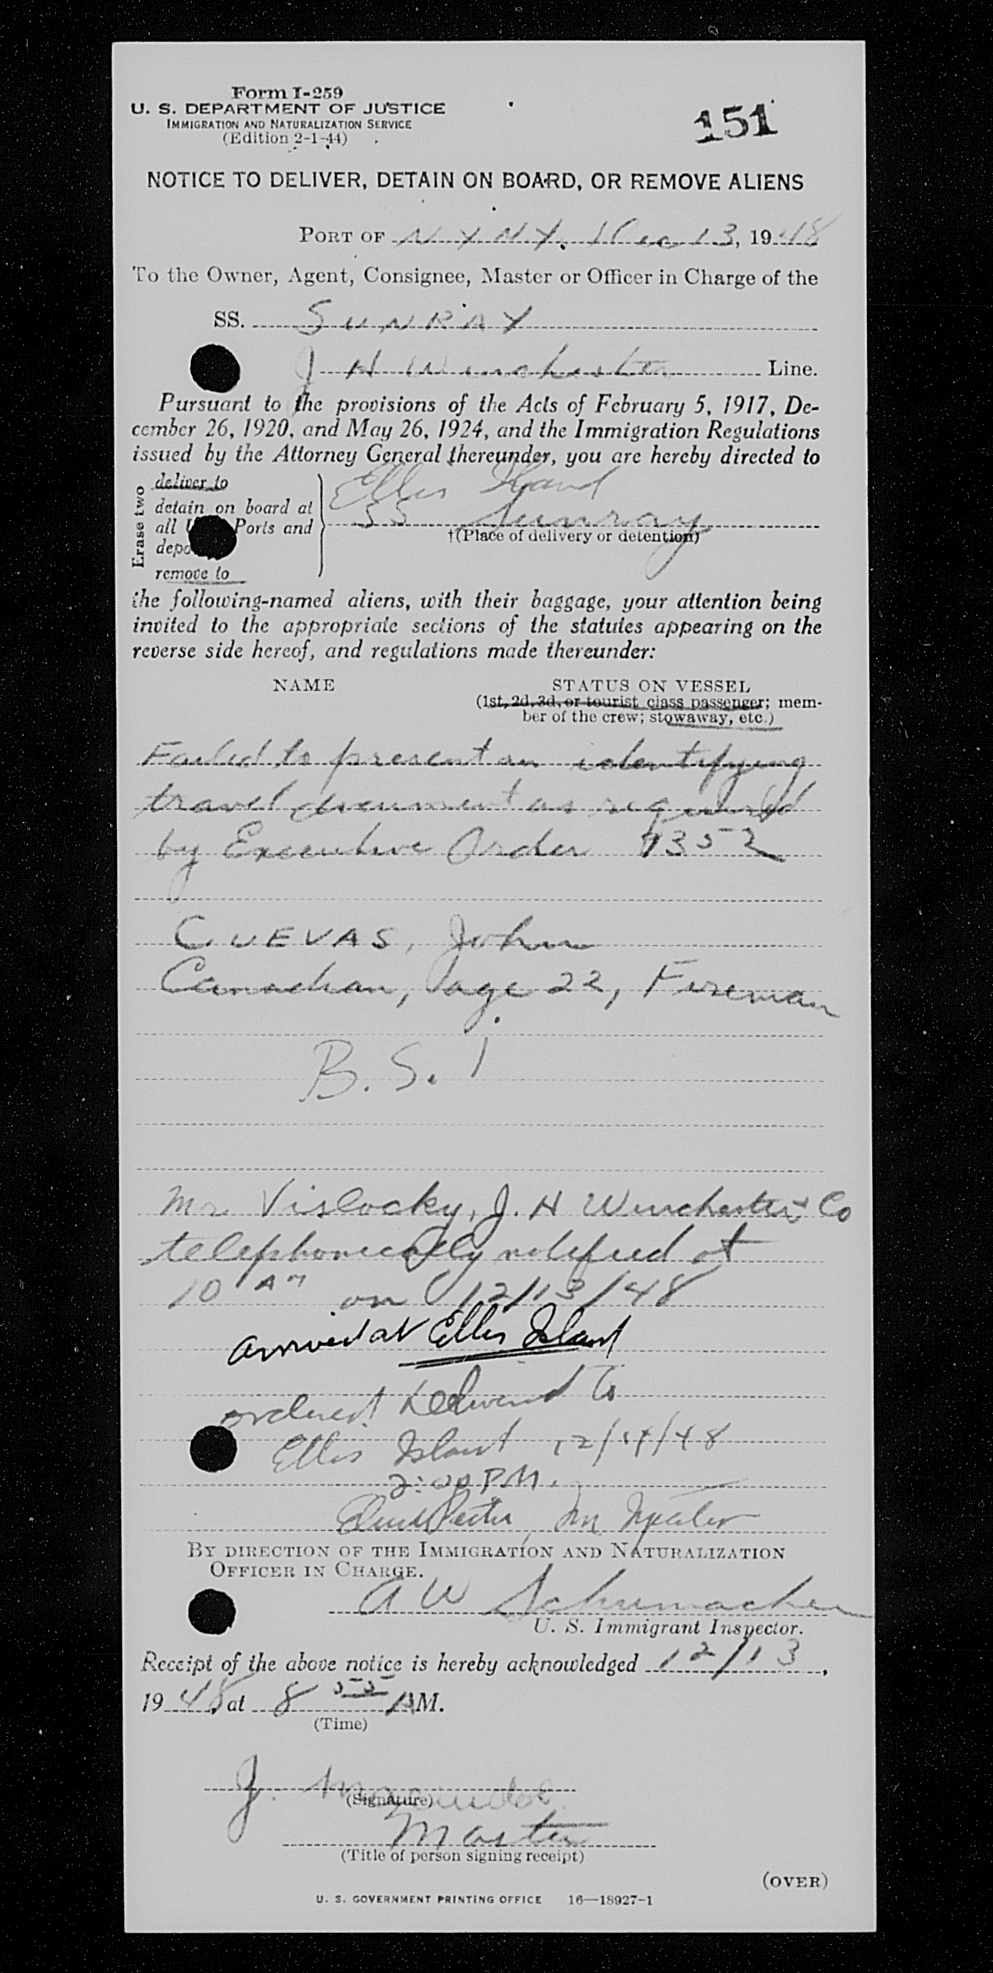 Form I-259
U. S. DEPARTMENT OF JUSTICE
IMMIGRATION AND NATURALIZATION SERVICE
(Edition 2-1-44)
151
NOTICE TO DELIVER, DETAIN ON BOARD, OR REMOVE ALIENS
PORT OF N Y N Y, Dec 13, 1948
To the Owner, Agent, Consignee, Master or Officer in Charge of the
SS. SUNRAY
J H Winchester Line.
Pursuant to the provisions of the Acts of February 5, 1917, De-
cember 26, 1920, and May 26, 1924, and the Immigration Regulations
issued by the Attorney General thereunder, you are hereby directed to
Erase two
deliver to
detain on board at
all Ports and
remove to
Ellis Island
SS Sunray
†(Place of delivery or detention)
the following-named aliens, with their baggage, your attention being
invited to the appropriate sections of the statutes appearing on the
reverse side hereof, and regulations made thereunder:
NAME STATUS ON VESSEL
(1st, 2d, 3d, or tourist class passenger; mem-
ber of the crew; stowaway, etc.)
Failed to present an identifying
travel document as required
by Executive Order 9352
CUEVAS, John
Canadian, age 22, Fireman
B. S. I
Mr Vislocky, J. H Winchester & Co
telephonically notified at
10 AM on 12/13/48
arrived at Ellis Island
ordered Delivered to
Ellis Island 12/14/48
2:00 PM.
BY DIRECTION OF THE IMMIGRATION AND NATURALIZATION
OFFICER IN CHARGE.
A W Schumacher
U. S. Immigrant Inspector.
Receipt of the above notice is hereby acknowledged 12/13,
1948, at 8 55 AM.
(Time)
J.
(Signature)
Master
(Title of person signing receipt)
(OVER)
U. S. GOVERNMENT PRINTING OFFICE 16—18927-1